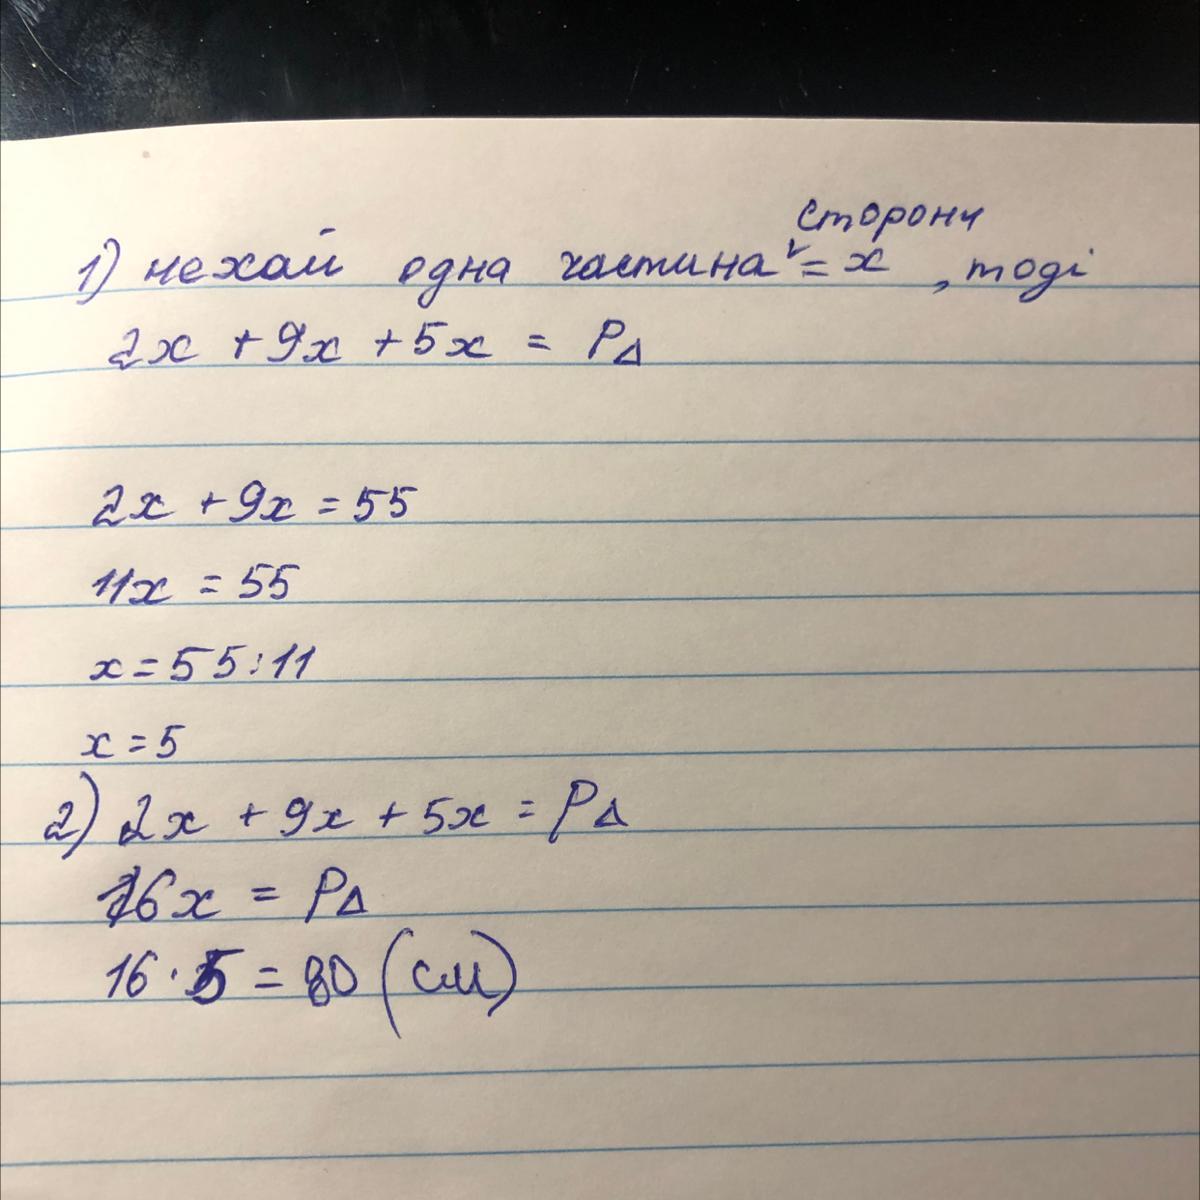 сторони
1) нехай одна частина = x , тоді
2x + 9x + 5x = P∆
2x + 9x = 55
11x = 55
x = 55:11
x = 5
2) 2x + 9x + 5x = P∆
16x = P∆
16 · 5 = 80 (см)